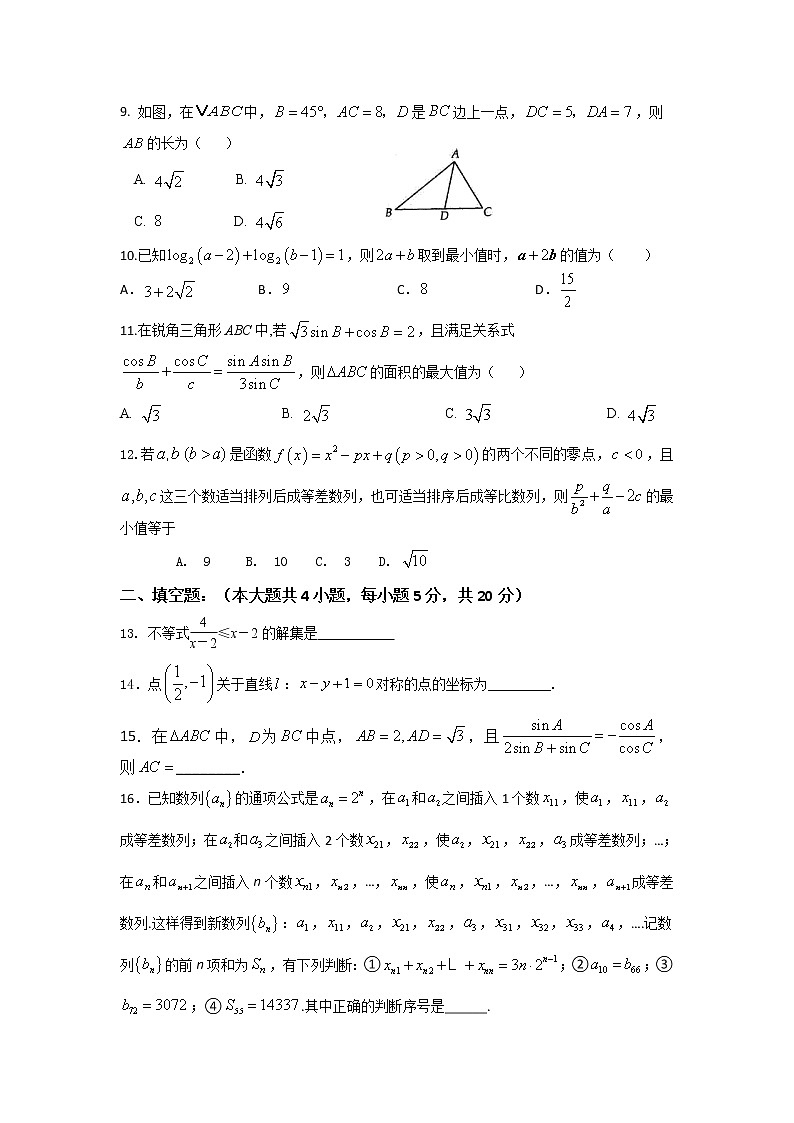 9. 如图，在VABC中，B=45°，AC=8，D是BC边上一点，DC=5，DA=7，则
AB的长为（ ）
A. 4√2 B. 4√3
A
B D C
C. 8 D. 4√6
10.已知log₂(a−2)+log₂(b−1)=1，则2a+b取到最小值时，a+2b的值为（ ）
A. 3+2√2 B. 9 C. 8 D. 15/2
11.在锐角三角形ABC中,若√3sin B+cos B=2，且满足关系式
cos B/b + cos C/c = sin Asin B/3sin C，则ΔABC的面积的最大值为（ ）
A. √3 B. 2√3 C. 3√3 D. 4√3
12.若a,b (b>a)是函数f(x)=x²−px+q(p>0,q>0)的两个不同的零点，c<0，且
a,b,c这三个数适当排列后成等差数列，也可适当排序后成等比数列，则p/b²+q/a−2c的最
小值等于
A. 9 B. 10 C. 3 D. √10
二、填空题：（本大题共4小题，每小题5分，共20分）
13. 不等式4/(x−2)≤x−2的解集是___________
14.点(1/2,−1)关于直线l：x−y+1=0对称的点的坐标为_________.
15．在ΔABC中，D为BC中点，AB=2,AD=√3，且sin A/(2sin B+sin C)=−cos A/cos C，
则AC=_________.
16．已知数列{aₙ}的通项公式是aₙ=2ⁿ，在a₁和a₂之间插入1个数x₁₁，使a₁，x₁₁，a₂
成等差数列；在a₂和a₃之间插入2个数x₂₁，x₂₂，使a₂，x₂₁，x₂₂，a₃成等差数列；…；
在aₙ和aₙ₊₁之间插入n个数xₙ₁，xₙ₂，…，xₙₙ，使aₙ，xₙ₁，xₙ₂，…，xₙₙ，aₙ₊₁成等差
数列.这样得到新数列{bₙ}：a₁，x₁₁，a₂，x₂₁，x₂₂，a₃，x₃₁，x₃₂，x₃₃，a₄，….记数
列{bₙ}的前n项和为Sₙ，有下列判断:①xₙ₁+xₙ₂+L +xₙₙ=3n·2ⁿ⁻¹；②a₁₀=b₆₆；③
b₇₂=3072；④S₅₅=14337.其中正确的判断序号是______.